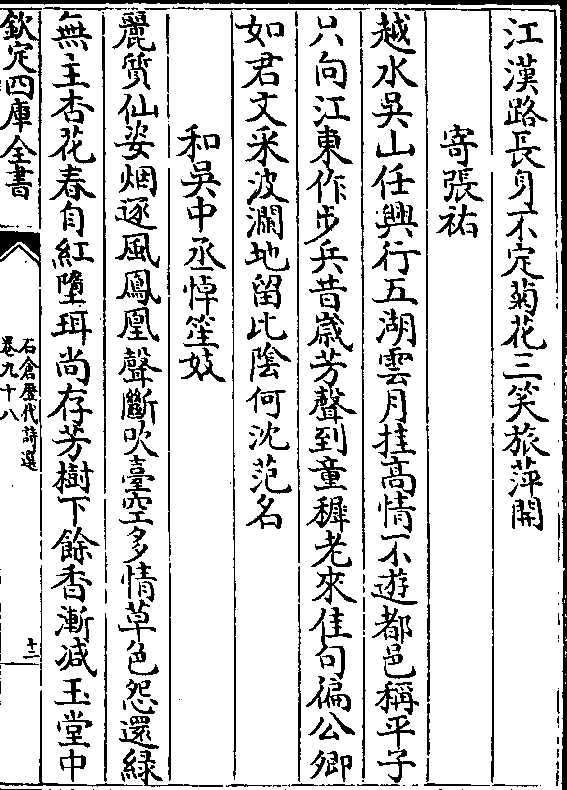 江漢路長身不定菊花三笑旅萍開
寄張祜
越水吳山任興行五湖雲月挂高情不遊都邑稱平子
只向江東作步兵昔嵗芳聲到童穉老來佳句徧公卿
如君文采波瀾地留比陰何沈范名
和吳中丞悼笙妓
麗質仙姿烟逐風鳳凰聲斷吹臺空多情草色怨還綠
無主杏花春自紅墮珥尚存芳樹下餘香漸减玉堂中
欽定四庫全書
石倉歷代詩選
卷九十八
十二